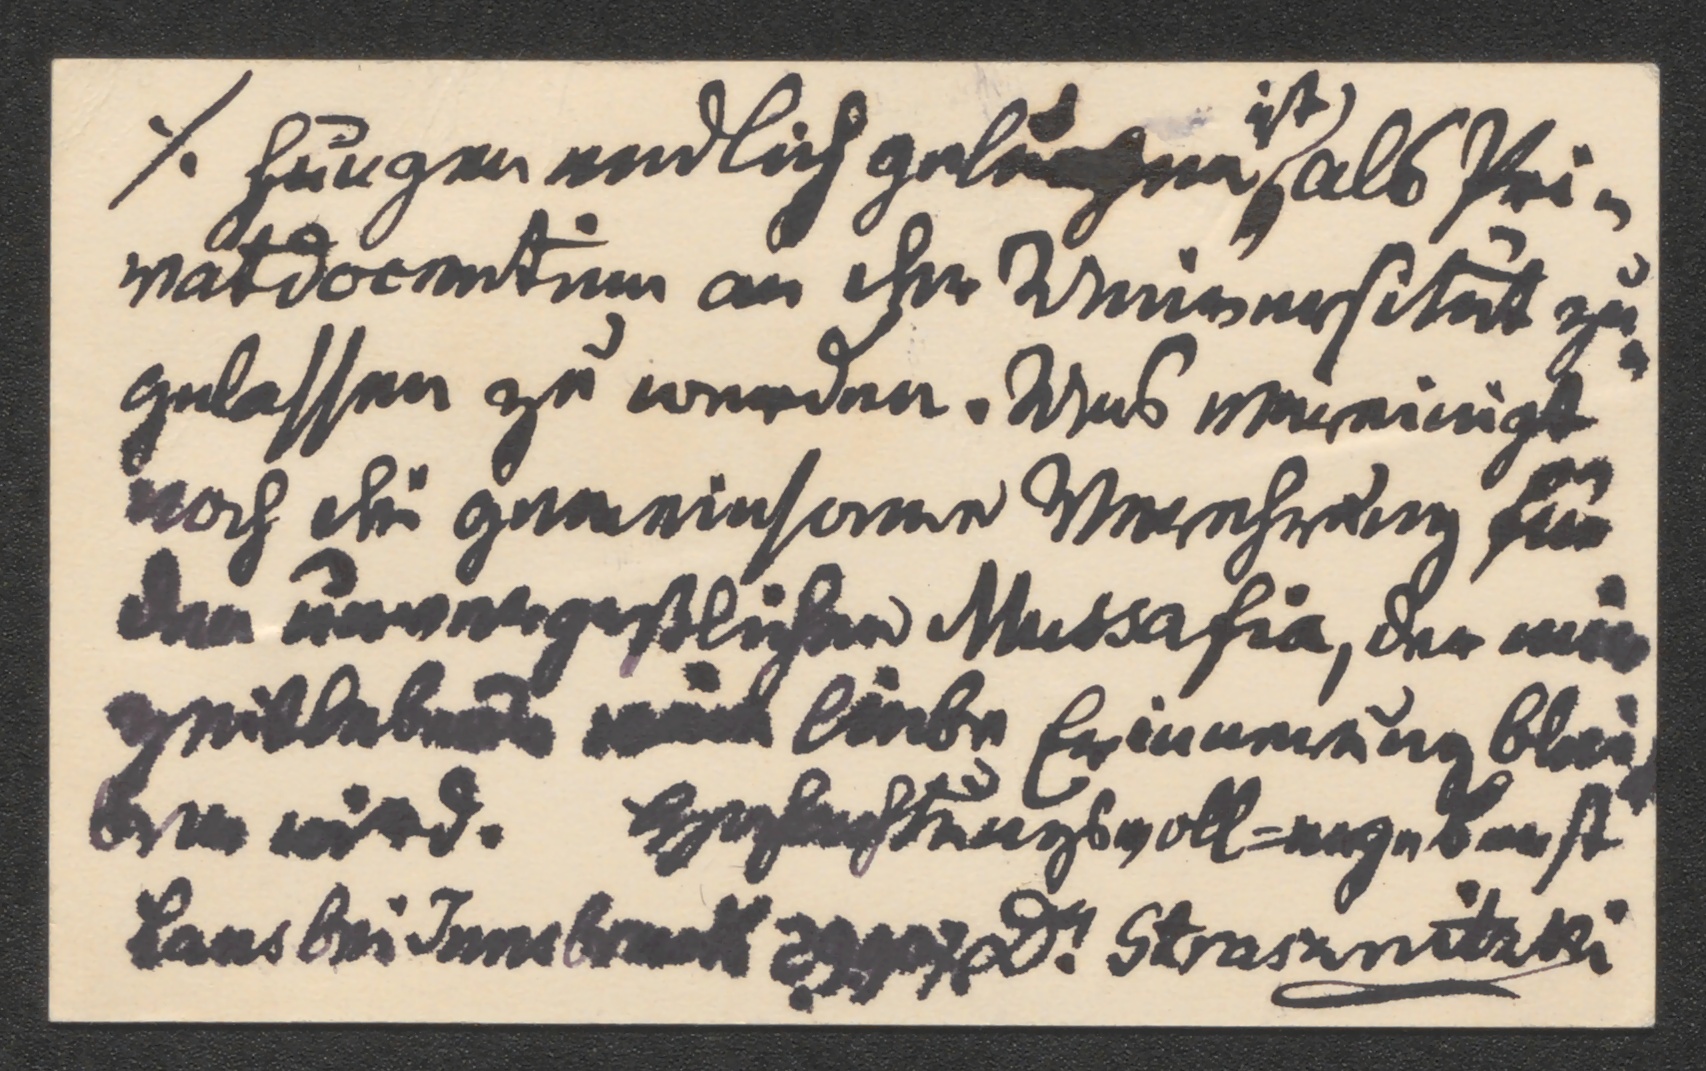 ./. hungen endlich gelungen ist, als Pri-
vatdocentin an der Universität zu-
gelassen zu werden. Uns vereinigt
noch die gemeinsame Verehrung für
den unvergeßlichen Mussafia, der mir
zeitlebens eine liebe Erinnerung blei-
ben wird. Hochachtungsvoll=ergebenst
Lans bei Innsbruck Dr. Strasznitzki